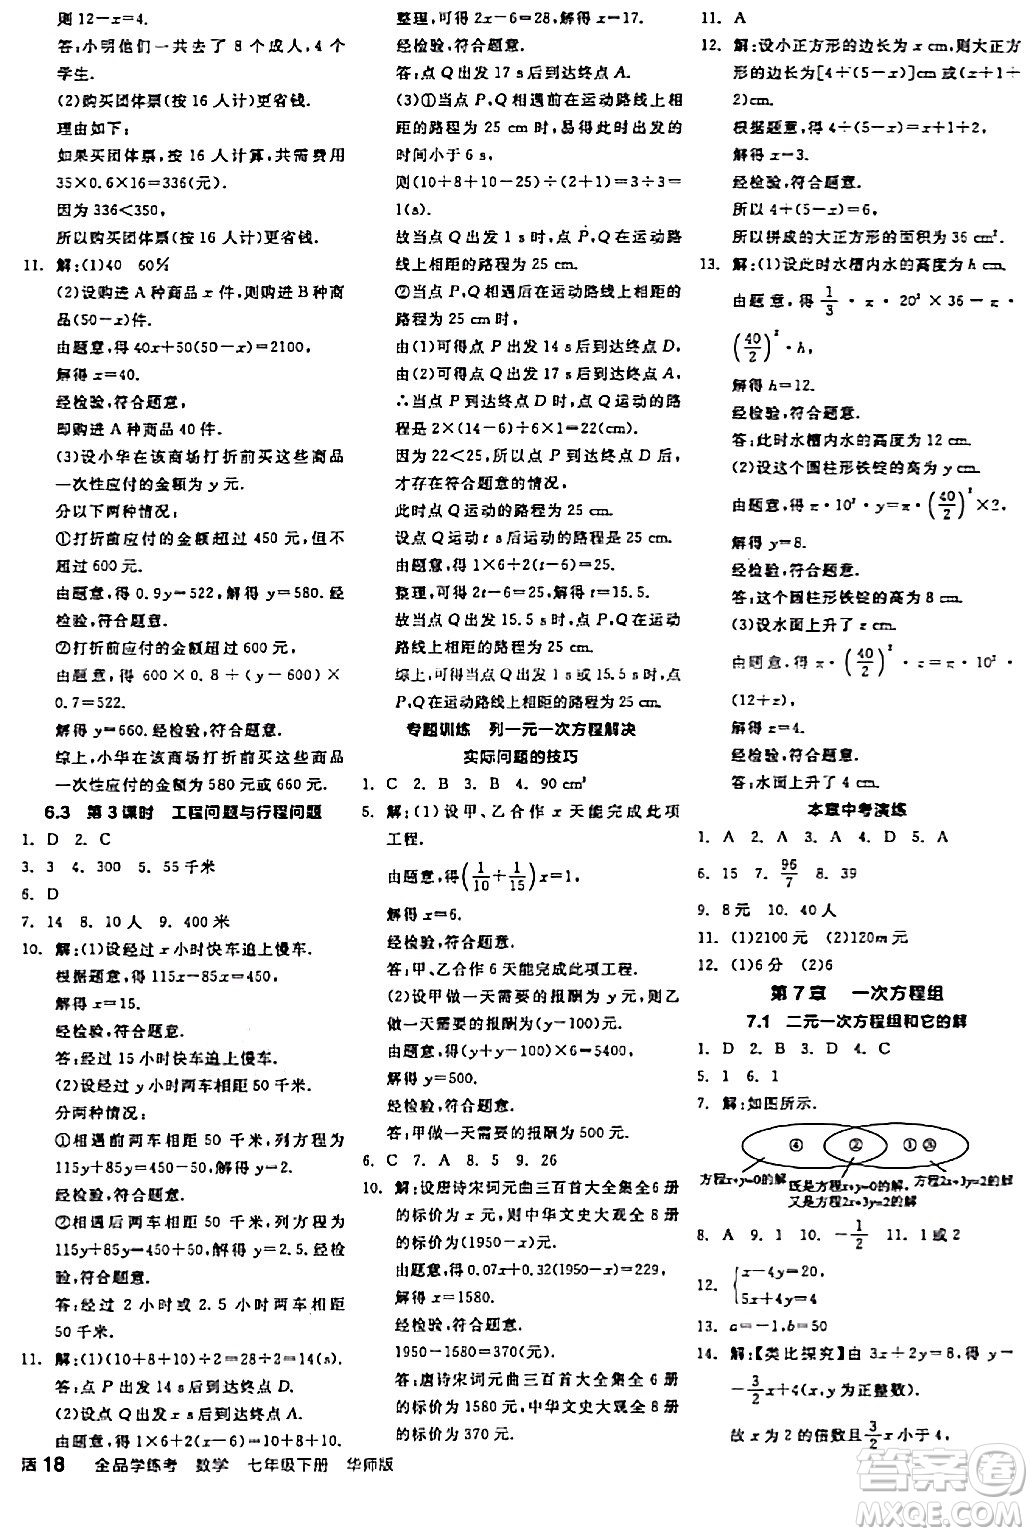 则 12-x=4.
答:小明他们一共去了 8 个成人,4 个
学生.
(2)购买团体票(按 16 人计)更省钱.
理由如下:
如果买团体票,按 16 人计算,共需费用
35×0.6×16=336(元).
因为 336<350,
所以购买团体票(按 16 人计)更省钱.
11. 解:(1)40 60%
(2)设购进 A 种商品 x 件,则购进 B 种商
品(50-x)件.
由题意,得 40x+50(50-x)=2100,
解得 x=40.
经检验,符合题意,
即购进 A 种商品 40 件.
(3)设小华在该商场打折前买这些商品
一次性应付的金额为 y 元.
分以下两种情况:
①打折前应付的金额超过 450 元,但不
超过 600 元.
由题意,得 0.9y=522,解得 y=580. 经
检验,符合题意.
②打折前应付的金额超过 600 元.
由题意,得 600×0.8+(y-600)×
0.7=522.
解得 y=660. 经检验,符合题意.
综上,小华在该商场打折前买这些商品
一次性应付的金额为 580 元或 660 元.
6.3 第 3 课时 工程问题与行程问题
1. D 2. C
3. 3 4. 300 5. 55 千米
6. D
7. 14 8. 10 人 9. 400 米
10. 解:(1)设经过 x 小时快车追上慢车.
根据题意,得 115x-85x=450,
解得 x=15.
经检验,符合题意.
答:经过 15 小时快车追上慢车.
(2)设经过 y 小时两车相距 50 千米.
分两种情况:
①相遇前两车相距 50 千米,列方程为
115y+85y+50=450,解得 y=2. 经检
验,符合题意.
②相遇后两车相距 50 千米,列方程为
115y+85y-50=450,解得 y=2.5. 经检
验,符合题意.
答:经过 2 小时或 2.5 小时两车相距
50 千米.
11. 解:(1)(10+8+10)÷2=28÷2=14(s).
答:点 P 出发 14 s 后到达终点 D.
(2)设点 Q 出发 x s 后到达终点 A.
由题意,得 1×6+2(x-6)=10+8+10,
整理,可得 2x-6=28,解得 x=17.
经检验,符合题意.
答:点 Q 出发 17 s 后到达终点 A.
(3)①当点 P,Q 相遇前在运动路线上相
距的路程为 25 cm 时,易得此时出发的
时间小于 6 s,
则(10+8+10-25)÷(2+1)=3÷3=
1(s).
故当点 Q 出发 1 s 时,P,Q 在运动路
线上相距的路程为 25 cm.
②当点 P,Q 相遇后在运动路线上相距的
路程为 25 cm 时,
由(1)可得点 P 出发 14 s 后到达终点 D.
由(2)可得点 Q 出发 17 s 后到达终点 A,
∴当点 P 到达终点 D 时,点 Q 运动的路
程是 2×(14-6)+6×1=22(cm).
因为 22<25,所以点 P 到达终点 D 后
才存在符合题意的情况,
此时点 Q 运动的路程为 25 cm.
设点 Q 运动 t s 后运动的路程为 25 cm.
由题意,得 1×6+2(t-6)=25.
整理,可得 2t-6=25,解得 t=15.5.
经检验,符合题意.
故当点 Q 出发 15.5 s 时,P,Q 在运动
路线上相距的路程为 25 cm.
综上,可得当点 Q 出发 1 s 或 15.5 s 时,
P,Q 在运动路线上相距的路程为 25 cm.
专题训练 列一元一次方程解决
实际问题的技巧
1. C 2. B 3. B 4. 90 cm²
5. 解:(1)设甲、乙合作 x 天能完成此项
工程.
由题意,得(1/10+1/15)x=1,
解得 x=6.
经检验,符合题意.
答:甲、乙合作 6 天能完成此项工程.
(2)设甲做一天需要的报酬为 y 元,则乙
做一天需要的报酬为(y-100)元.
由题意,得(y+y-100)×6=5400,
解得 y=500.
经检验,符合题意.
答:甲做一天需要的报酬为 500 元.
6. C 7. A 8. 5 9. 26
10. 解:设唐诗宋词元曲三百首大全集全 6 册
的标价为 x 元,则中华文史大观全 8 册
的标价为(1950-x)元.
由题意,得 0.07x+0.32(1950-x)=229,
解得 x=1580.
经检验,符合题意.
1950-1580=370(元).
答:唐诗宋词元曲三百首大全集全 6 册
的标价为 1580 元,中华文史大观全 8 册
的标价为 370 元.
11. A
12. 解:设小正方形的边长为 x cm,则大正方
形的边长为[4+(5-x)]cm 或(x+1+
2)cm.
根据题意,得 4+(5-x)=x+1+2,
解得 x=3.
经检验,符合题意.
所以 4+(5-x)=6,
所以拼成的大正方形的面积为 36 cm².
13. 解:(1)设此时水槽内水的高度为 h cm.
由题意,得 1/3·π·20²×36=π·
(40/2)²·h,
解得 h=12.
经检验,符合题意.
答:此时水槽内水的高度为 12 cm.
(2)设这个圆柱形铁锭的高为 y cm.
由题意,得 π·10²·y=π·(40/2)²×2,
解得 y=8.
经检验,符合题意.
答:这个圆柱形铁锭的高为 8 cm.
(3)设水面上升了 z cm.
由题意,得 π·(40/2)²·z=π·10²·
(12+z),
解得 z=4.
经检验,符合题意.
答:水面上升了 4 cm.
本章中考演练
1. A 2. A 3. A 4. D 5. A
6. 15 7. 96/7 8. 39
9. 8 元 10. 40 人
11. (1)2100 元 (2)120m 元
12. (1)6 分 (2)6
第 7 章 一次方程组
7.1 二元一次方程组和它的解
1. D 2. B 3. D 4. C
5. 1 6. 1
7. 解:如图所示.
④ ② ①③
方程x+y=0的解 既是方程x+y=0的解, 方程2x+3y=2的解
又是方程2x+3y=2的解
8. A 9. 1 10. -1/2 11. 1 或 2
12. {x-4y=20,
5x+4y=4
13. a=-1,b=50
14. 解:【类比探究】由 3x+2y=8,得 y=
-3/2x+4(x,y 为正整数).
故 x 为 2 的倍数且 3/2x 小于 4,
活 18 全品学练考 数学 七年级下册 华师版
答案圈
MXQE.COM